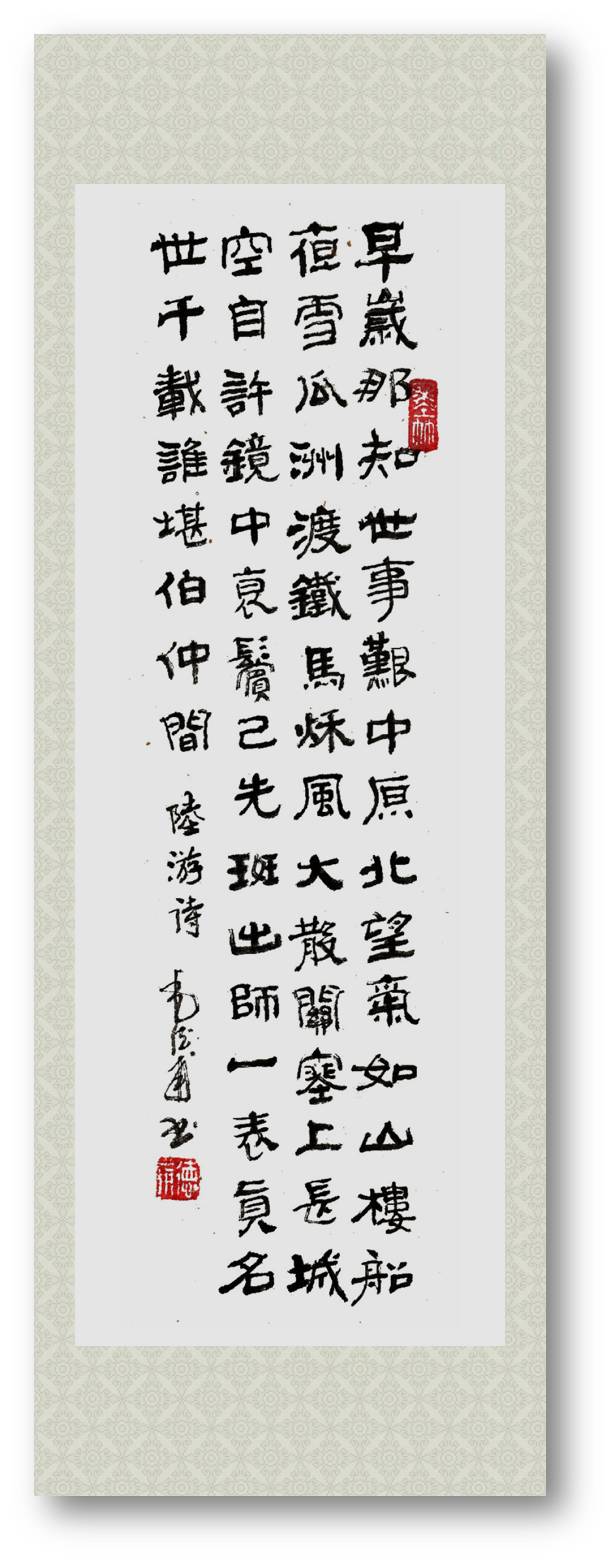 早歲那知世事艱中原北望氣如山樓船
夜雪瓜洲渡鐵馬秋風大散關塞上長城
空自許鏡中衰鬢已先斑出師一表眞名
世千載誰堪伯仲間 陸游詩 书